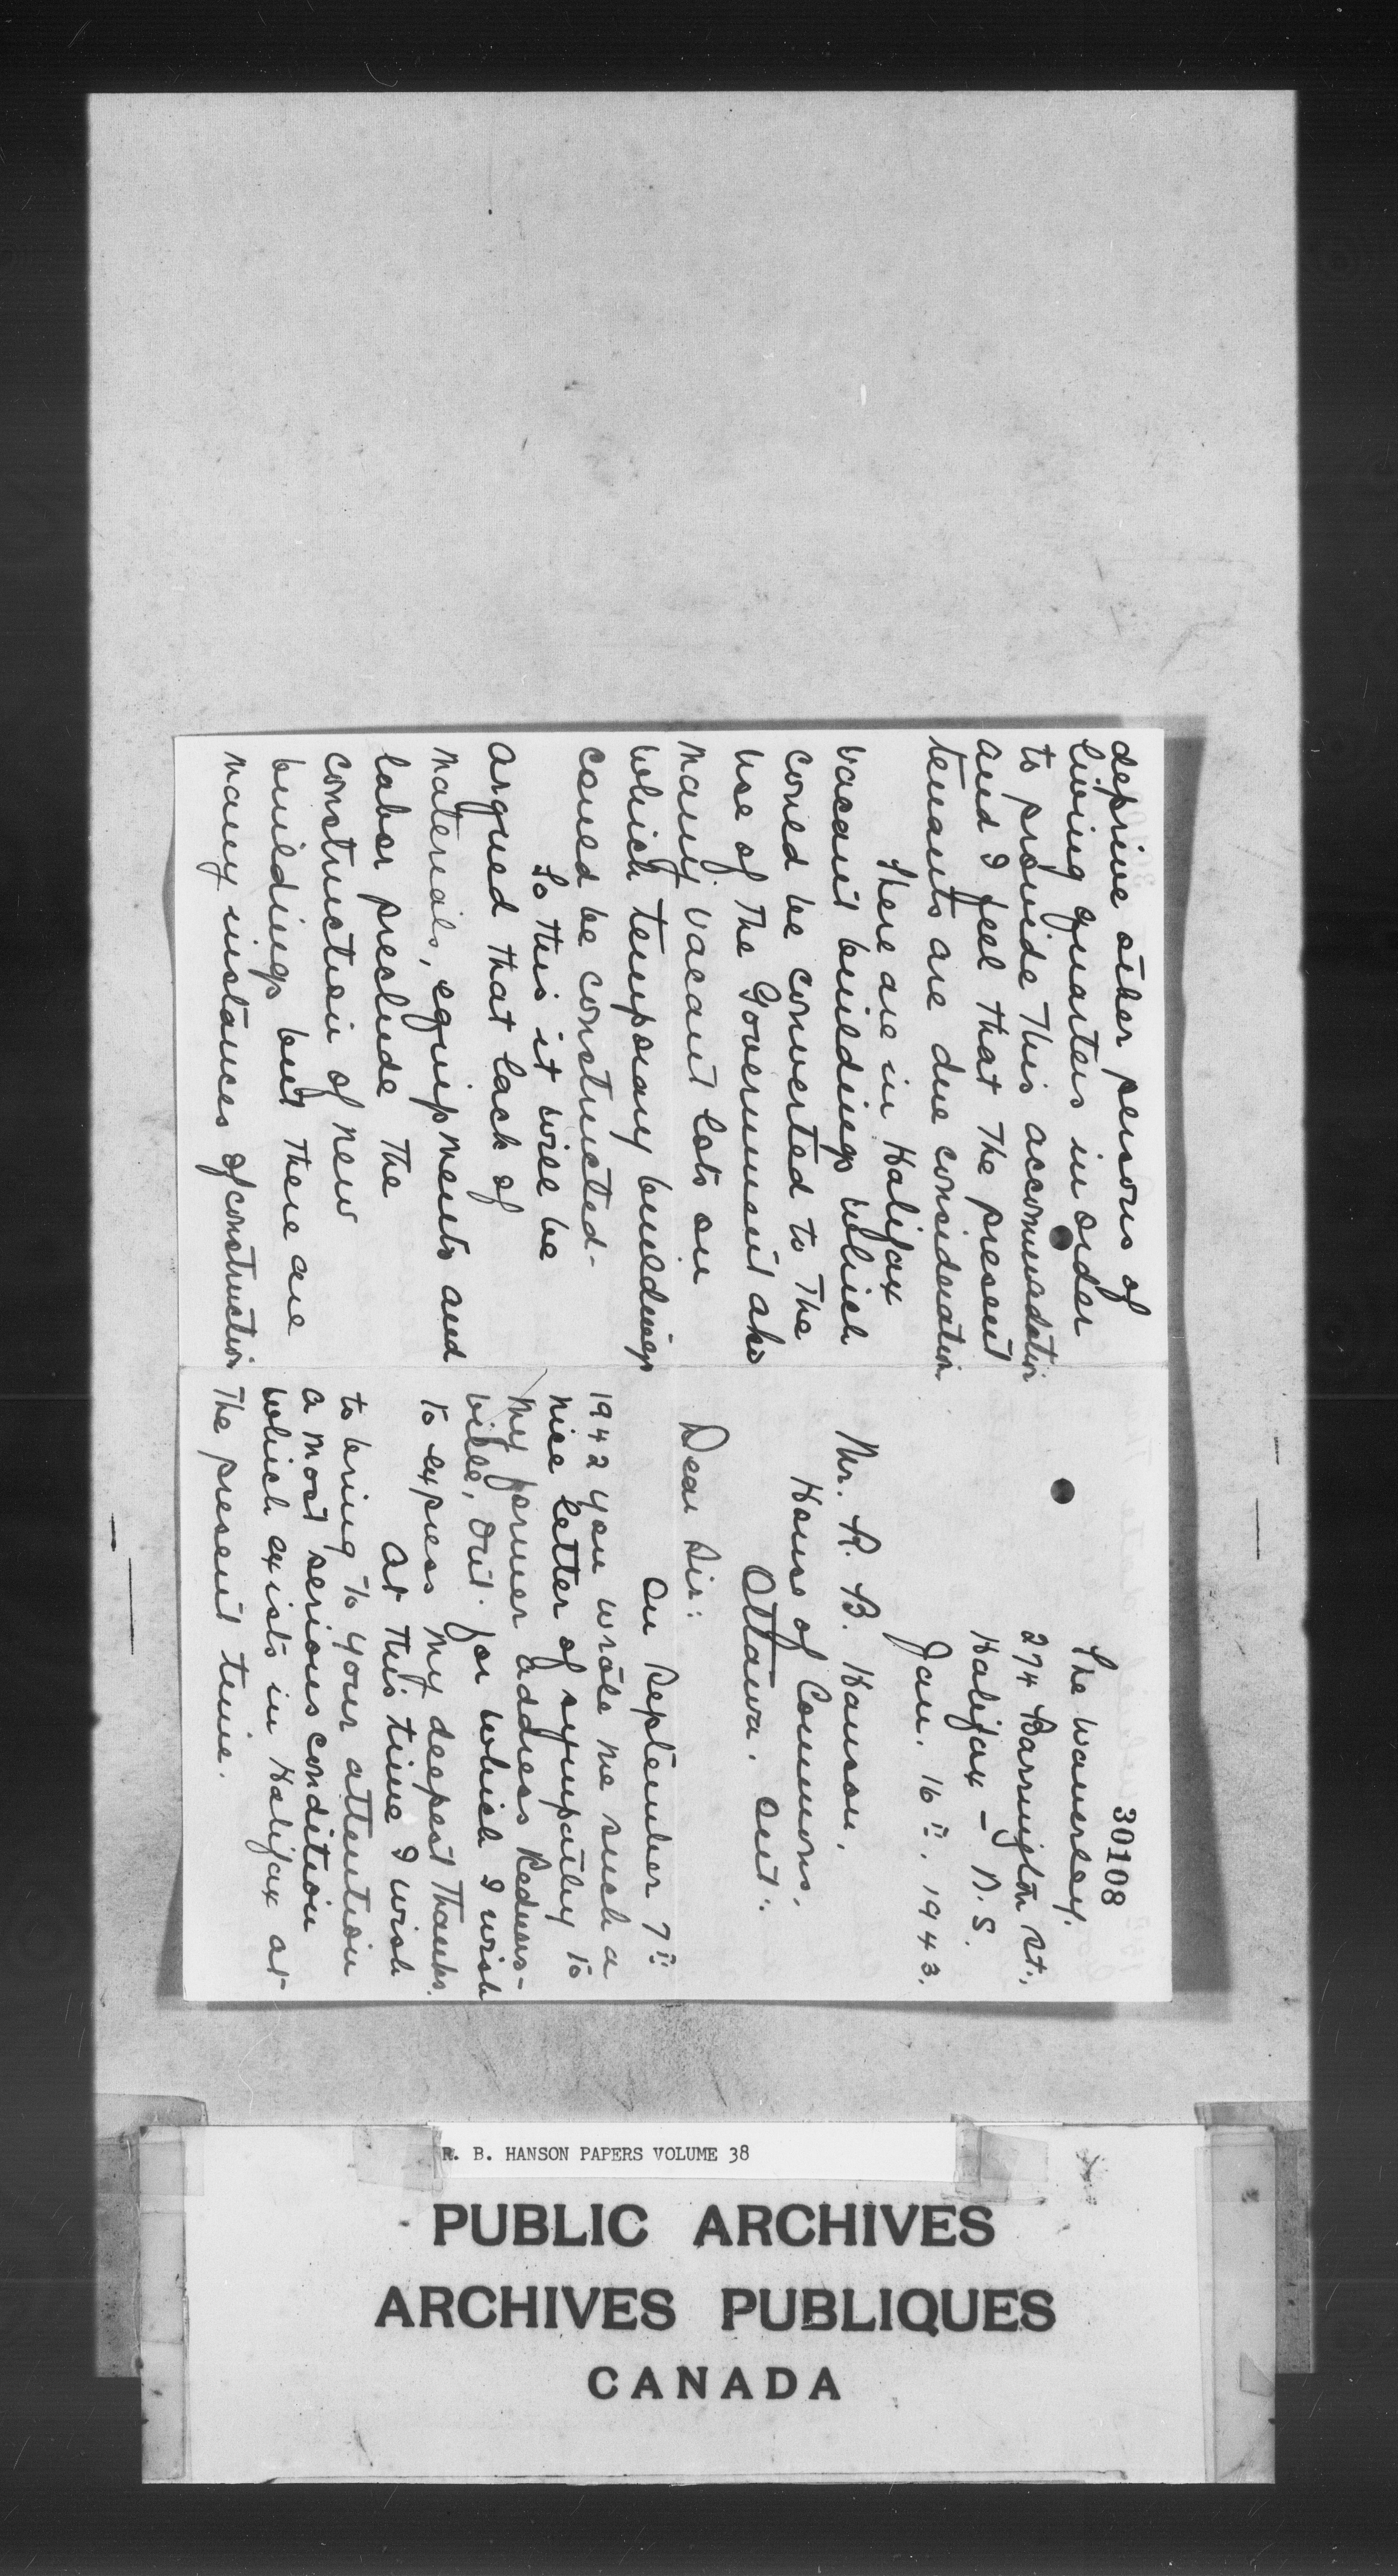 deprive other persons of
living quarters in order
to provide this accommodation
and I feel that the present
tenants are due consideration
There are in Halifax
vacant buildings which
could be converted to the
use of the Government also
many vacant lots on
which temporary buildings
could be constructed-
To this it will be
argued that lack of
materials, equipments and
labor preclude the
construction of new
buildings but there are
many instances of construction
30108
The Waverley.
274 Barrington St.,
Halifax - N.S.
Jan. 16th. 1943.
Mr. R. B. Hanson,
House of Commons,
Ottawa. Ont:.
Dear Sir:
On September 7th
1942 you wrote me such a
nice letter of sympathy to
my former address Redners-
ville, Ont. for which I wish
to express my deepest thanks.
At this time I wish
to bring to your attention
a most serious condition
which exists in Halifax at
the present time.
R. B. HANSON PAPERS VOLUME 38
PUBLIC ARCHIVES
ARCHIVES PUBLIQUES
CANADA